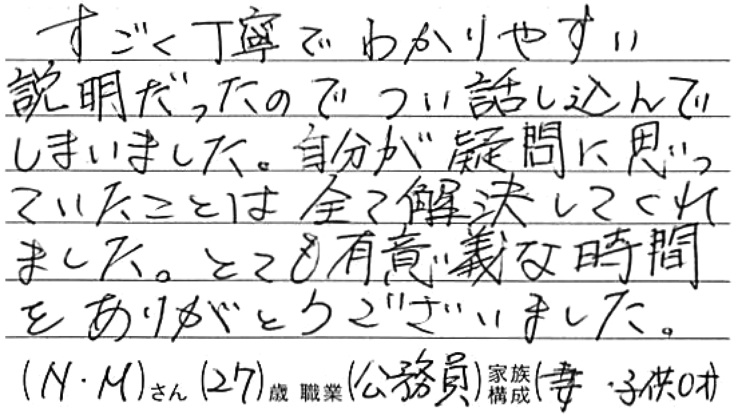 すごく丁寧でわかりやすい
説明だったのでつい話し込んで
しまいました。自分が疑問に思っ
ていたことは全て解決してくれ
ました。とても有意義な時間
をありがとうございました。
(N・M)さん (27)歳 職業(公務員)家族構成(妻・子供0才